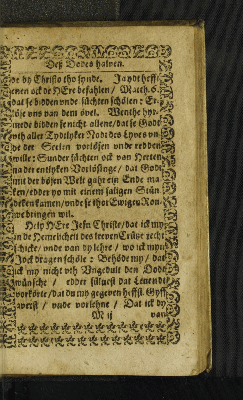 Deß Dodes halven.
de by Christo tho synde. Jaydt heffst
jenen ock de HEre befahlen / Matth. 6.
dat se bidden unde süchten schölen: Er-
löse uns van dem övel. Wente hyr
mede bidden se nicht allene / dat se Godt
uth aller Tydtlyker Nodt des Lyves un-
de der Seelen vorlösen unde redden
wille: Sunder süchten ock van Herten
na der entlyken Vorlösinge / dat Godt
mit der bösen Welt gahr ein Ende ma-
ken / edder yo mit einem saligen Stün-
deken kamen / unde se thor Ewigen Rou-
we bringen wil.
Help HEre Jesu Christe / dat ick my
in de Hemelicheit des leeven Crütze recht
schicke / unde van dy lehre / wo ick myn
Jock dragen schöle: Behöde my / dat
ick my nicht uth Ungedult den Dodt
wünsche / edder sülvest dat Levendt
vorkörte / dat du my gegeven heffst. Gyff
averst / unde vorlehne / Dat ick dy
M ij
van